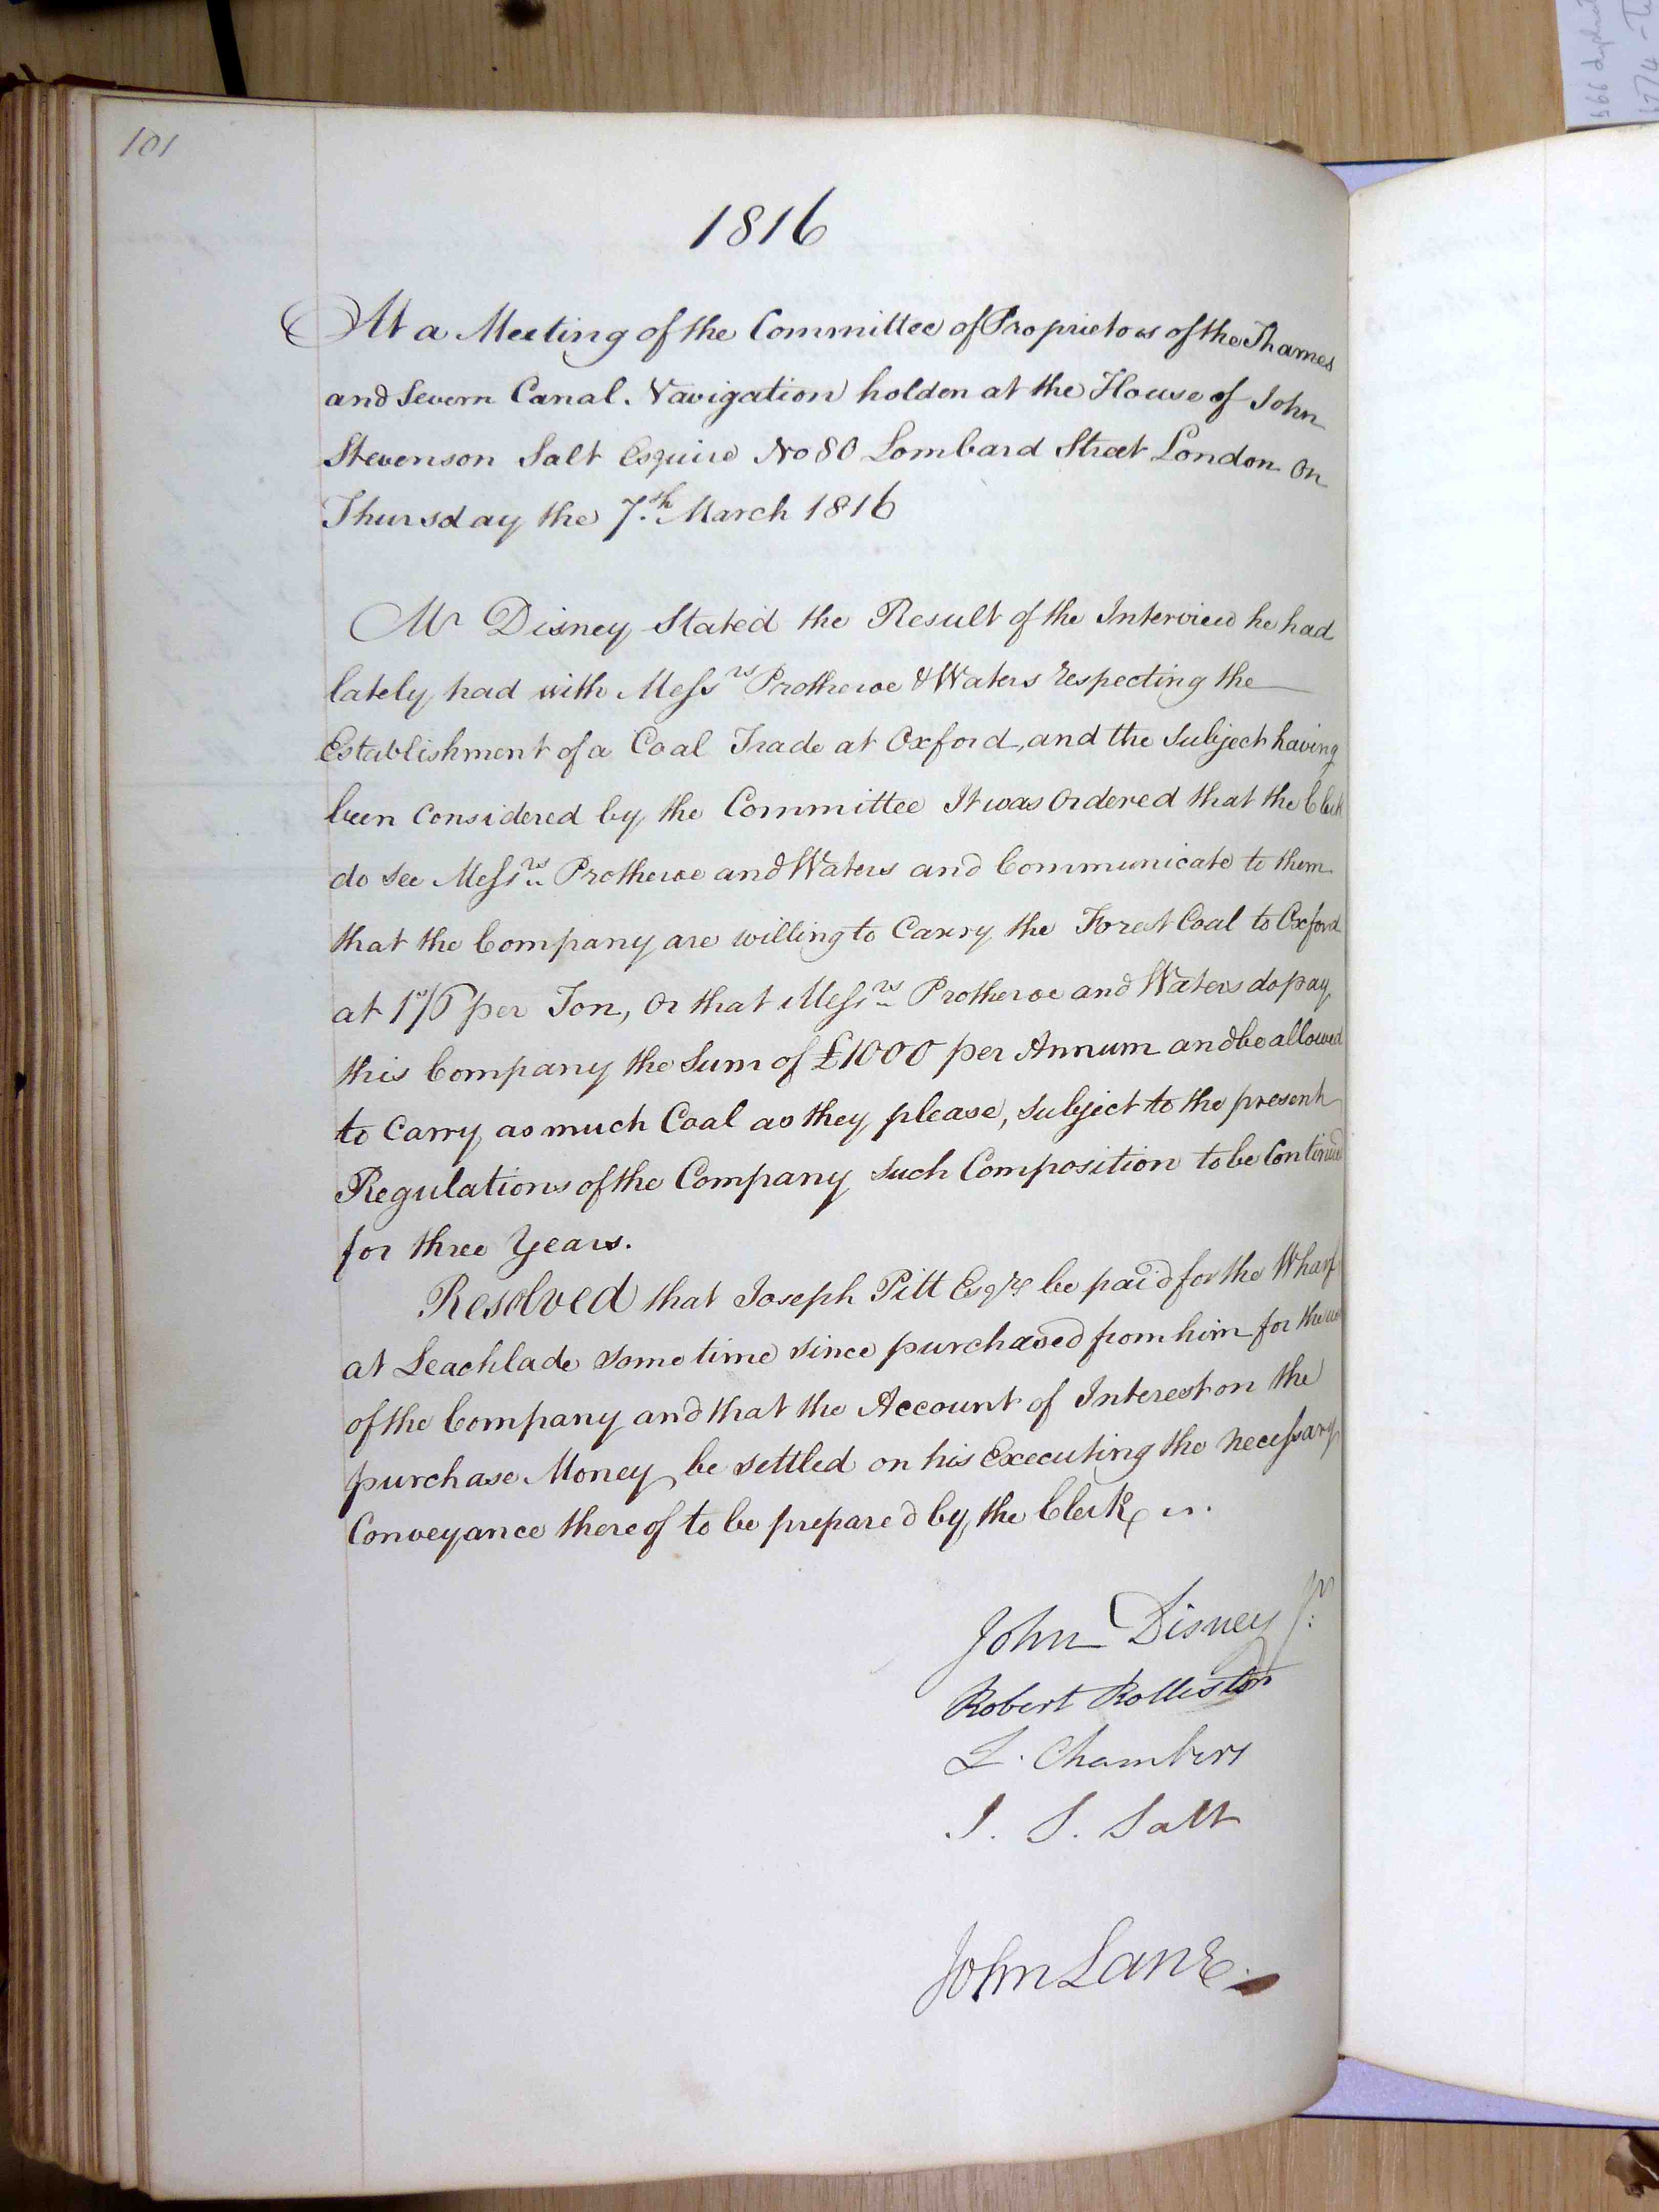 101
1816
At a Meeting of the Committee of Proprietors of the Thames
and Severn Canal Navigation holden at the House of John
Stevenson Salt Esquire No 80 Lombard Street London on
Thursday the 7.th March 1816
Mr Disney Stated the Result of the Interview he had
lately had with Messrs Protheroe & Waters respecting the
Establishment of a Coal Trade at Oxford, and the Subject having
been Considered by the Committee It was Ordered that the Clerk
do see Messrs Protheroe and Waters and Communicate to them
that the Company are willing to Carry the Forest Coal to Oxford
at per Ton, or that Messrs Protheroe and Waters do pay
this Company the Sum of £1000 per Annum and be allowed
to Carry as much Coal as they please, subject to the present
Regulations of the Company such Composition to be Continued
for three Years.
Resolved that Joseph Pitt Esqre be paid for the Wharf
at Leachlade some time since purchased from him for the use
of the Company and that the Account of Interest on the
purchase Money be settled on his Executing the necessary
Conveyance thereof to be prepared by the Clerk
John Disney Jr:
Robert Rolleston
L. Chambers
J. S. Salt
John Lane.